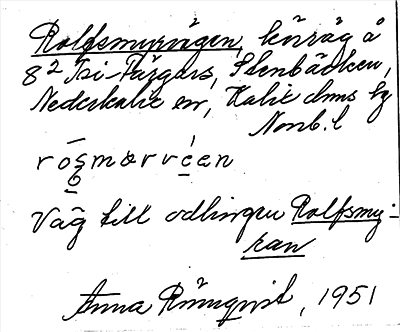 Rolfsmyrvägen, körväg å
8² Isi-Färgars, Stenbäcken,
Nederkalix sn, Kalix dms hg
Norrb. l
Väg till odlingen Rolfsmy-
ran
Anna Rönnqvist, 1951